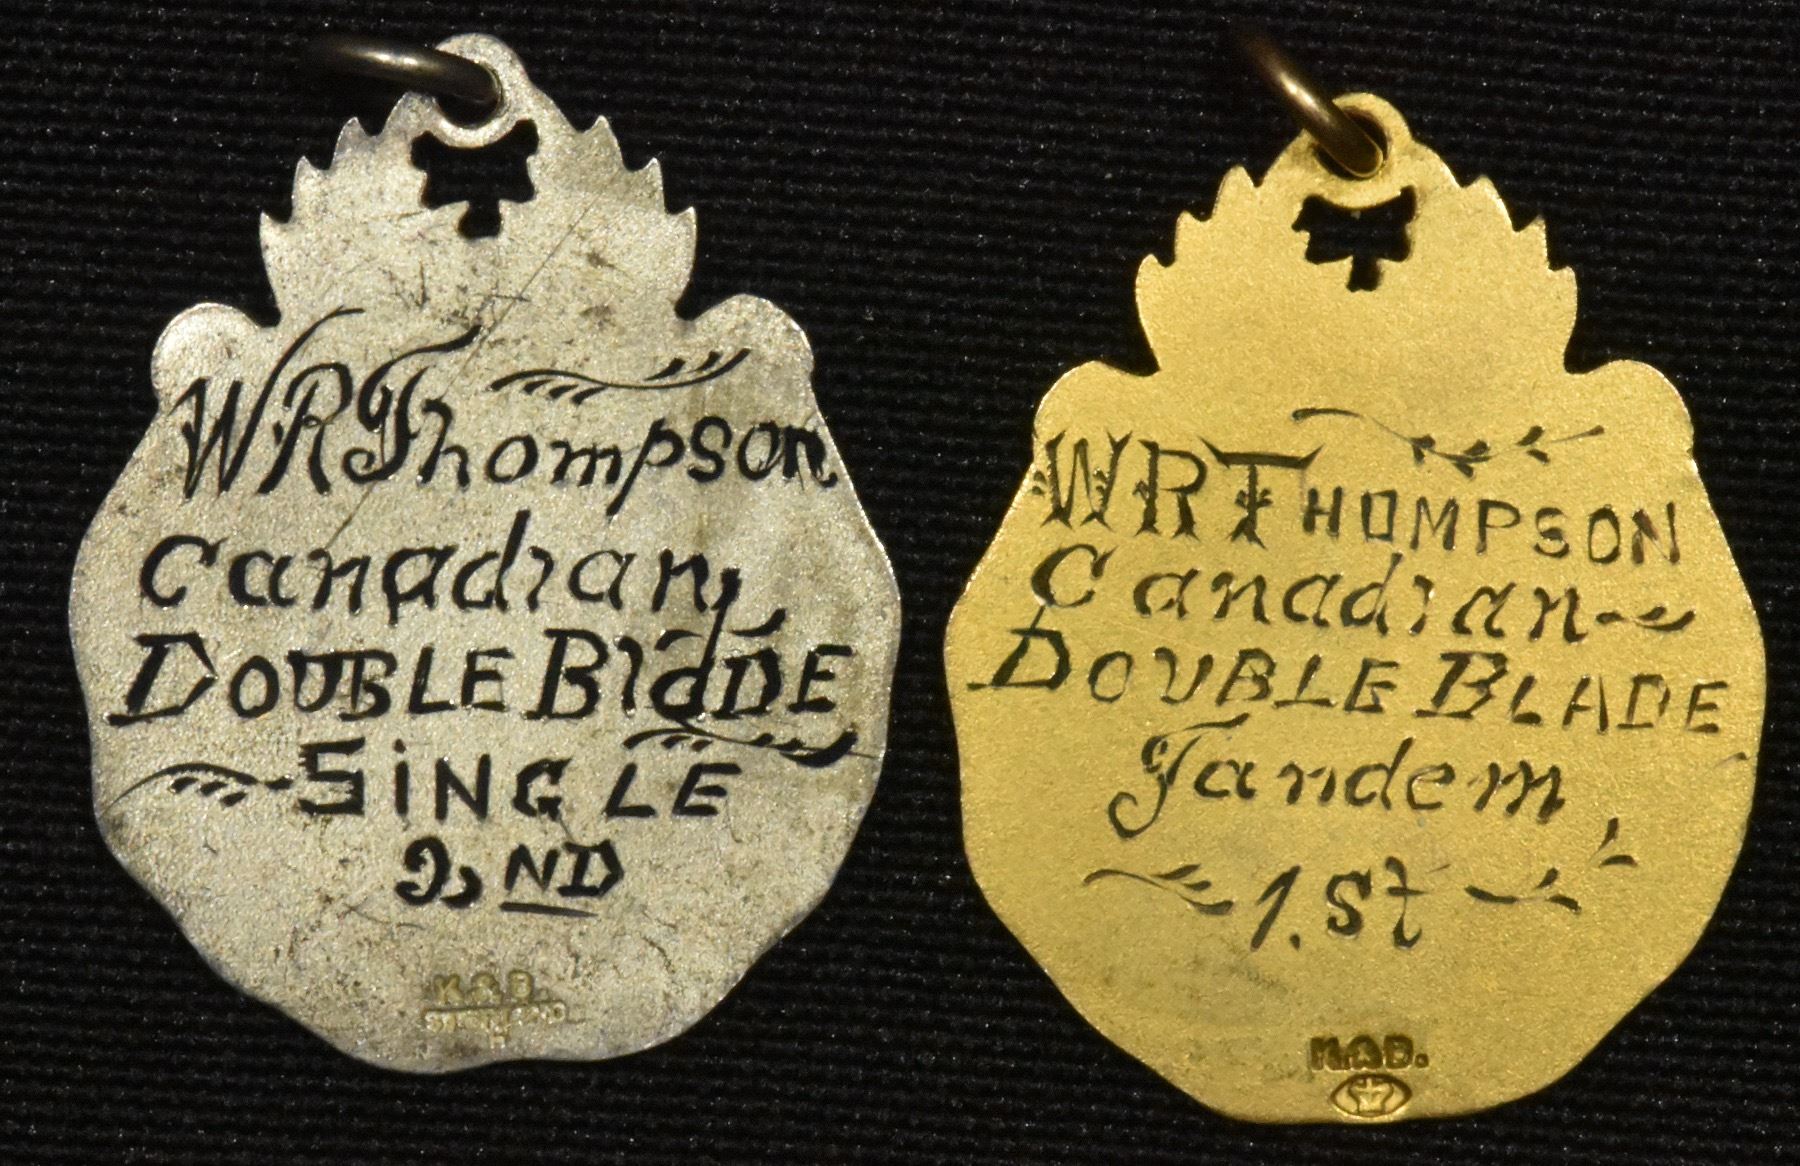 WRThompson
Canadian
DOUBLE BlaDE
SiNGLE
2ND
K & D
WRTHOMPSON
Canadian
DOUBLE BLADE
Tandem
1.St
K.&D.